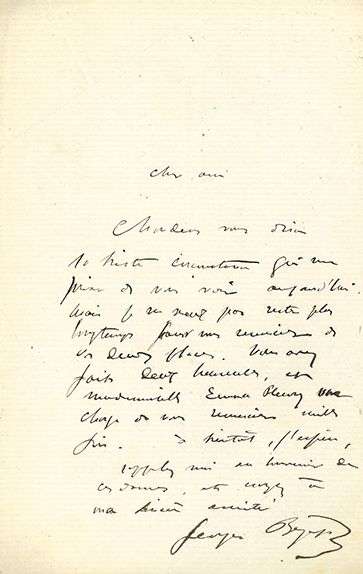 Cher ami
vous dira
la triste circonstance qui me
prive de vous voir aujourd'hui.
mais je ne veux pas rester plus
longtemps sans vous remercier de
vos deux places. Vous avez
fait deux heureuses, et
mademoiselle Emma Fleury me
charge de vous remercier mille
fois. à bientôt, j'espère,
rappelez moi au souvenir de
ces dames, et croyez à
ma sincère amitié
Georges